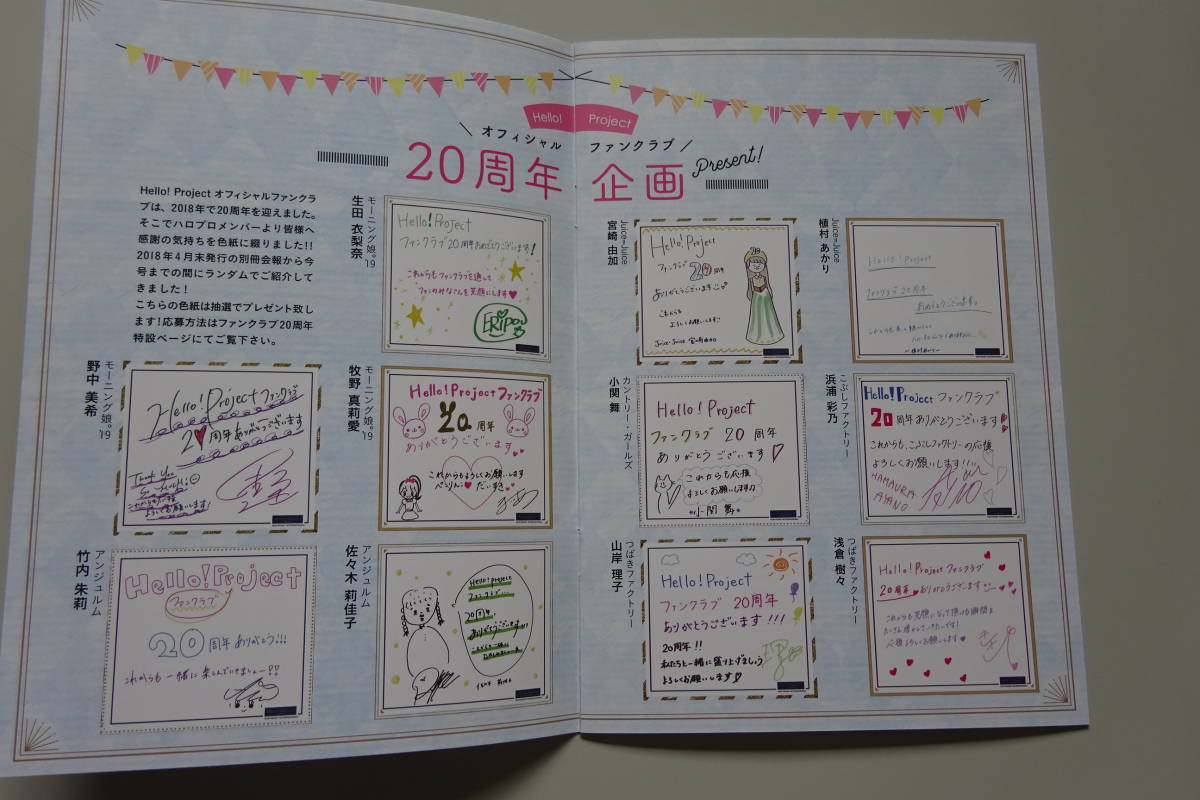 Hello! Project
オフィシャル ファンクラブ
20周年 企画 Present!
Hello! Project オフィシャルファンクラ
ブは、2018年で20周年を迎えました。
そこでハロプロメンバーより皆様へ
感謝の気持ちを色紙に綴りました!!
2018年4月末発行の別冊会報から今
号までの間にランダムでご紹介して
きました!
こちらの色紙は抽選でプレゼント致し
ます!応募方法はファンクラブ20周年
特設ページにてご覧下さい。
モーニング娘。'19
生田 衣梨奈
Hello! Project
ファンクラブ20周年おめでとうございます!
これからもファンクラブを通して
ファンのみなさんを笑顔にします♥
ERIPO
モーニング娘。'19
野中 美希
Hello! Project ファンクラブ
20周年ありがとうございます
Thank You
So Much!
これからも応援
よろしくお願いします!
モーニング娘。'19
牧野 真莉愛
Hello! Project ファンクラブ
20周年
ありがとうございます
これからもよろしくお願いします
だいすき
アンジュルム
竹内 朱莉
Hello! Project
ファンクラブ
20周年ありがとう!!!
これからも一緒に楽しんでいきましょー!!
アンジュルム
佐々木 莉佳子
Hello! project
ファンクラブ
20周年
ありがとうございます!!
Juice=Juice
宮崎 由加
Hello! Project
ファンクラブ 20周年
ありがとうございます
これからも
よろしくお願いします!
Juice=Juice 宮崎由加
Juice=Juice
植村 あかり
Hello! Project
ファンクラブ 20周年
カントリー・ガールズ
小関 舞
Hello! Project
ファンクラブ 20 周年
ありがとうございます
これからも応援
よろしくお願いします
小関 舞
こぶしファクトリー
浜浦 彩乃
Hello! Project ファンクラブ
20周年ありがとうございます
これからも、こぶしファクトリーの応援
よろしくお願いします!!
HAMAURA
AYANO
つばきファクトリー
山岸 理子
Hello! Project
ファンクラブ 20周年
ありがとうございます!!!
20周年!!
私たちと一緒に盛り上げましょう
よろしくお願いします♡
つばきファクトリー
浅倉 樹々
Hello! Project ファンクラブ
20周年♥ありがとうございます
これからも笑顔になって頂ける瞬間を
応援よろしくお願いします♥